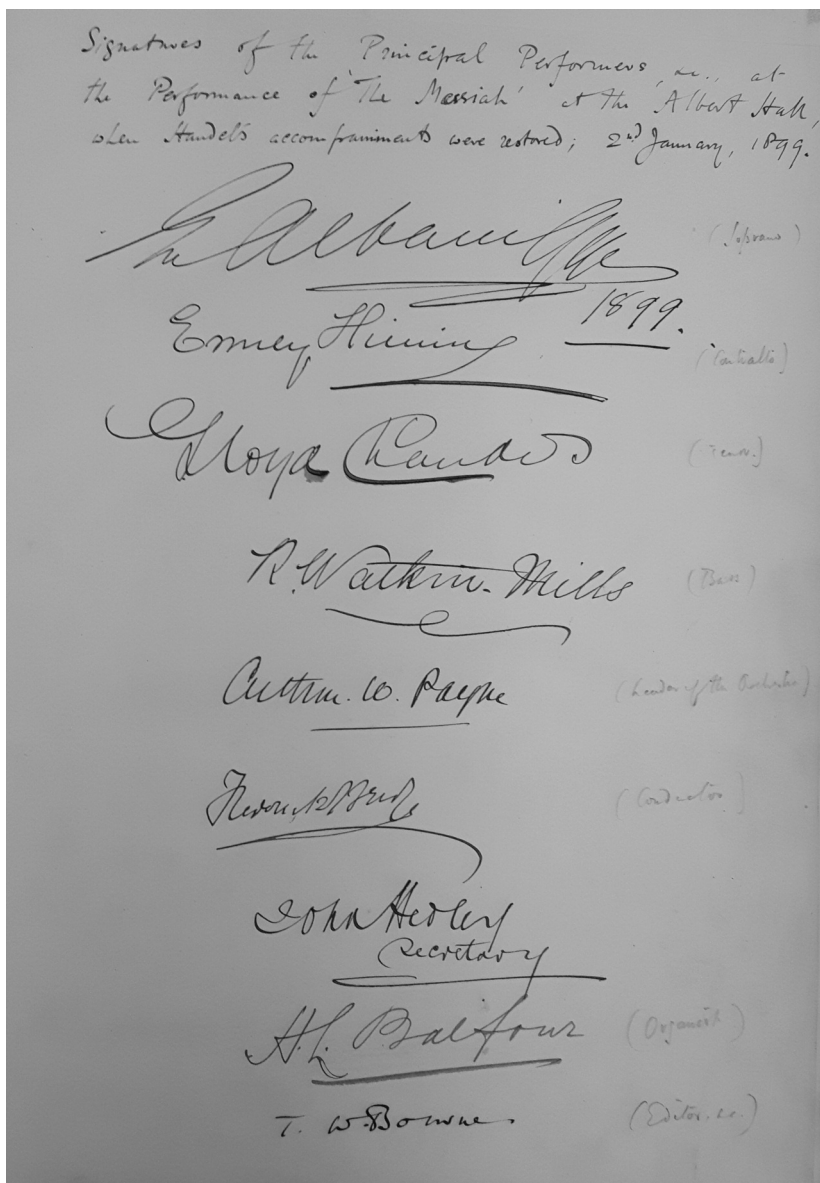 Signatures of the Principal Performers, &c., at
the Performance of 'The Messiah' at the Albert Hall,
when Handel's accompaniments were restored; 2nd January, 1899.
Albani Gye (Soprano)
1899.
Emily Himing (Contralto)
Lloyd Chandos (Tenor.)
R. Watkin-Mills (Bass)
Arthur. W. Payne (Leader of the Orchestra)
Frederick Bridge (Conductor)
John Hedley
Secretary
H. L. Balfour (Organist)
T. W. Bourne. (Editor. &c.)